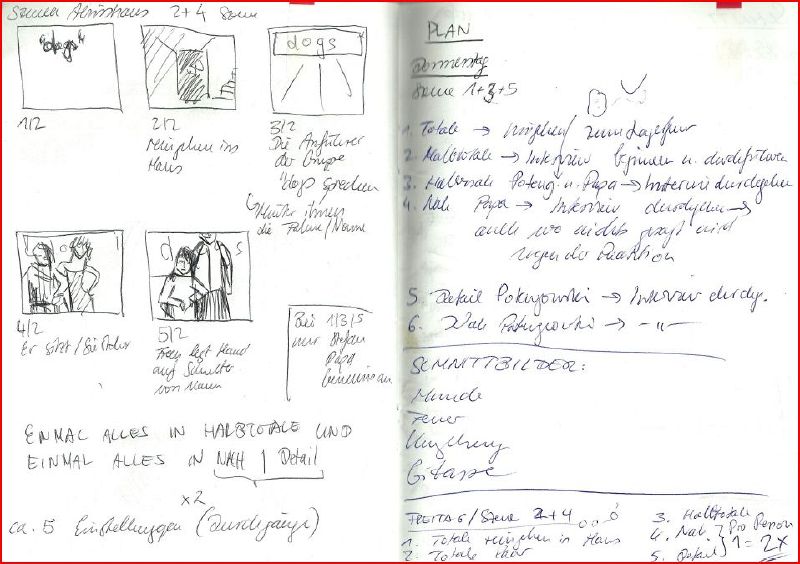 2+4 Szene
"dogs"
dogs
1/2
2/2
Reingehen ins
Haus
3/2
Die Anführer
der Gruppe
"dogs sprechen
Hinter ihnen
die Fahne/Name
d s
4/2
Er sitzt/Sie
5/2
legt Hand
auf Schulter
von Mann
Bei 1/3/5
nur Stefan
Papa
gemeinsam
EINMAL ALLES IN HALBTOTALE UND
EINMAL ALLES IN NAH | Detail
x2
ca. 5 Einstellungen (Durchgänge)
PLAN
Donnerstag
Szene 1+3+5
1. Totale → hingehen/ zum Lagerfeuer
2. Halbtotale → Interview beginnen u. durchführen
3. Halbtotale u. Papa → Interview durchgehen
4. Nah Papa → Interview durchgehen →
auch wo nichts gesagt wird
wegen der Reaktion
5. Detail → Interview durchg.
6. Nah → -"-
SCHNITTBILDER:
Hunde
Feuer
Umgebung
Gitarre
FREITAG/Szene 2+4
1. Totale reingehen in Haus
2. Totale
3. Halbtotale
4. Nah
5. Detail
Pro Person
1 = 2x